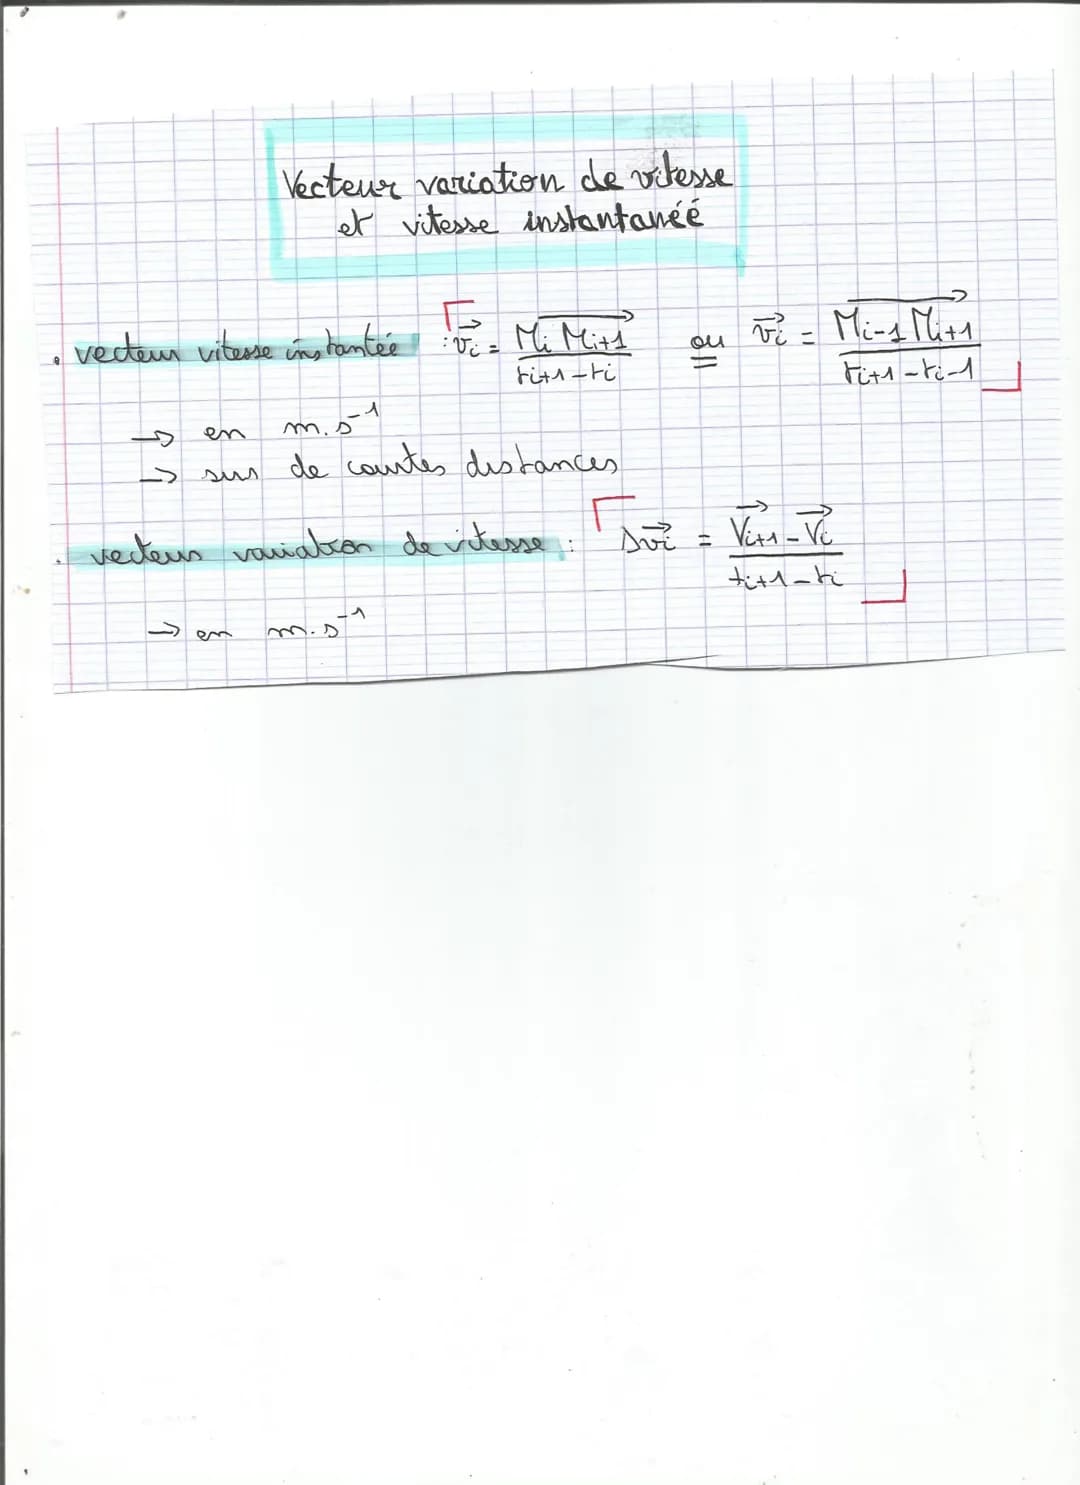 Vecteur variation de vitesse
et vitesse instantanéé
. vecteur vitesse instantée : vi = Mi Mi+1 / ti+1 - ti ou vi = Mi-1 Mi+1 / ti+1 - ti-1
→ en m.s⁻¹
→ sur de courtes distances
. vecteur variation de vitesse : Δvi = Vi+1 - Vi / ti+1 - ti
→ en m.s⁻¹